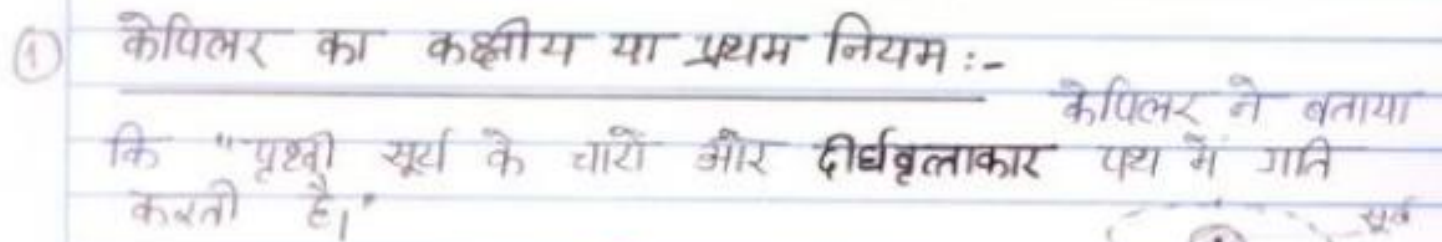 ① केपिलर का कक्षीय या प्रथम नियम :-
केपिलर ने बताया
कि "पृथ्वी सूर्य के चारों ओर दीर्घवृत्ताकार पथ में गति
करती है।"
सूर्य